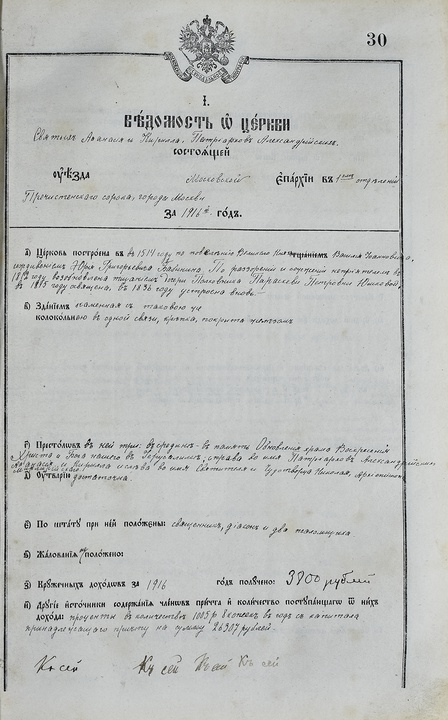 30
І.
ВѢДОМОСТЬ Ѡ ЦЕРКВИ
Святыхъ Аѳанасія и Кирилла, Патріарховъ Александрійскихъ
состоѧщей
оуѣзда Московской епархіи въ 1мъ отдѣленіи
Пречистенскаго сорока, города Москвы
За 1916й годъ.
а) Церковь построена въ 1514 году по повелѣнію Великаго Князя Василія Іоанновича,
иждивеніемъ Юрія Григорьевича Бобынина. По разореніи и непріятелемъ въ
1812 году возобновлена тщаніемъ Параскеви Петровны Юшковой,
въ 1815 году освящена, въ 1836 году устроена вновь.
в) Зданіемъ каменная съ таковою же
колокольнею въ одной связи, крѣпка, покрыта желѣзомъ
г) Престоловъ въ ней три: въ срединѣ - въ память Обновленія храма Воскресенія
Христа и Бога нашего въ Іерусалимѣ, справа во имя Патріарховъ Александрійскихъ
Аѳанасія и Кирилла и слѣва во имя Святителя и Чудотворца Николая, Архіепископа
д) Оутварію достаточна.
е) По штату при ней положены: священникъ, діаконъ и два псаломщика.
ѕ) Жалованія положено:
з) Кружечныхъ доходовъ за 1916 годъ получено: 3800 рублей
и) Другіе источники содержанія членовъ причта и количество поступающаго ѿ нихъ
дохода: проценты въ количествѣ 1005 р 8 копеекъ въ годъ съ капитала
принадлежащаго причту на сумму 26307 рублей.
Къ сей Къ сей Къ сей Къ сей